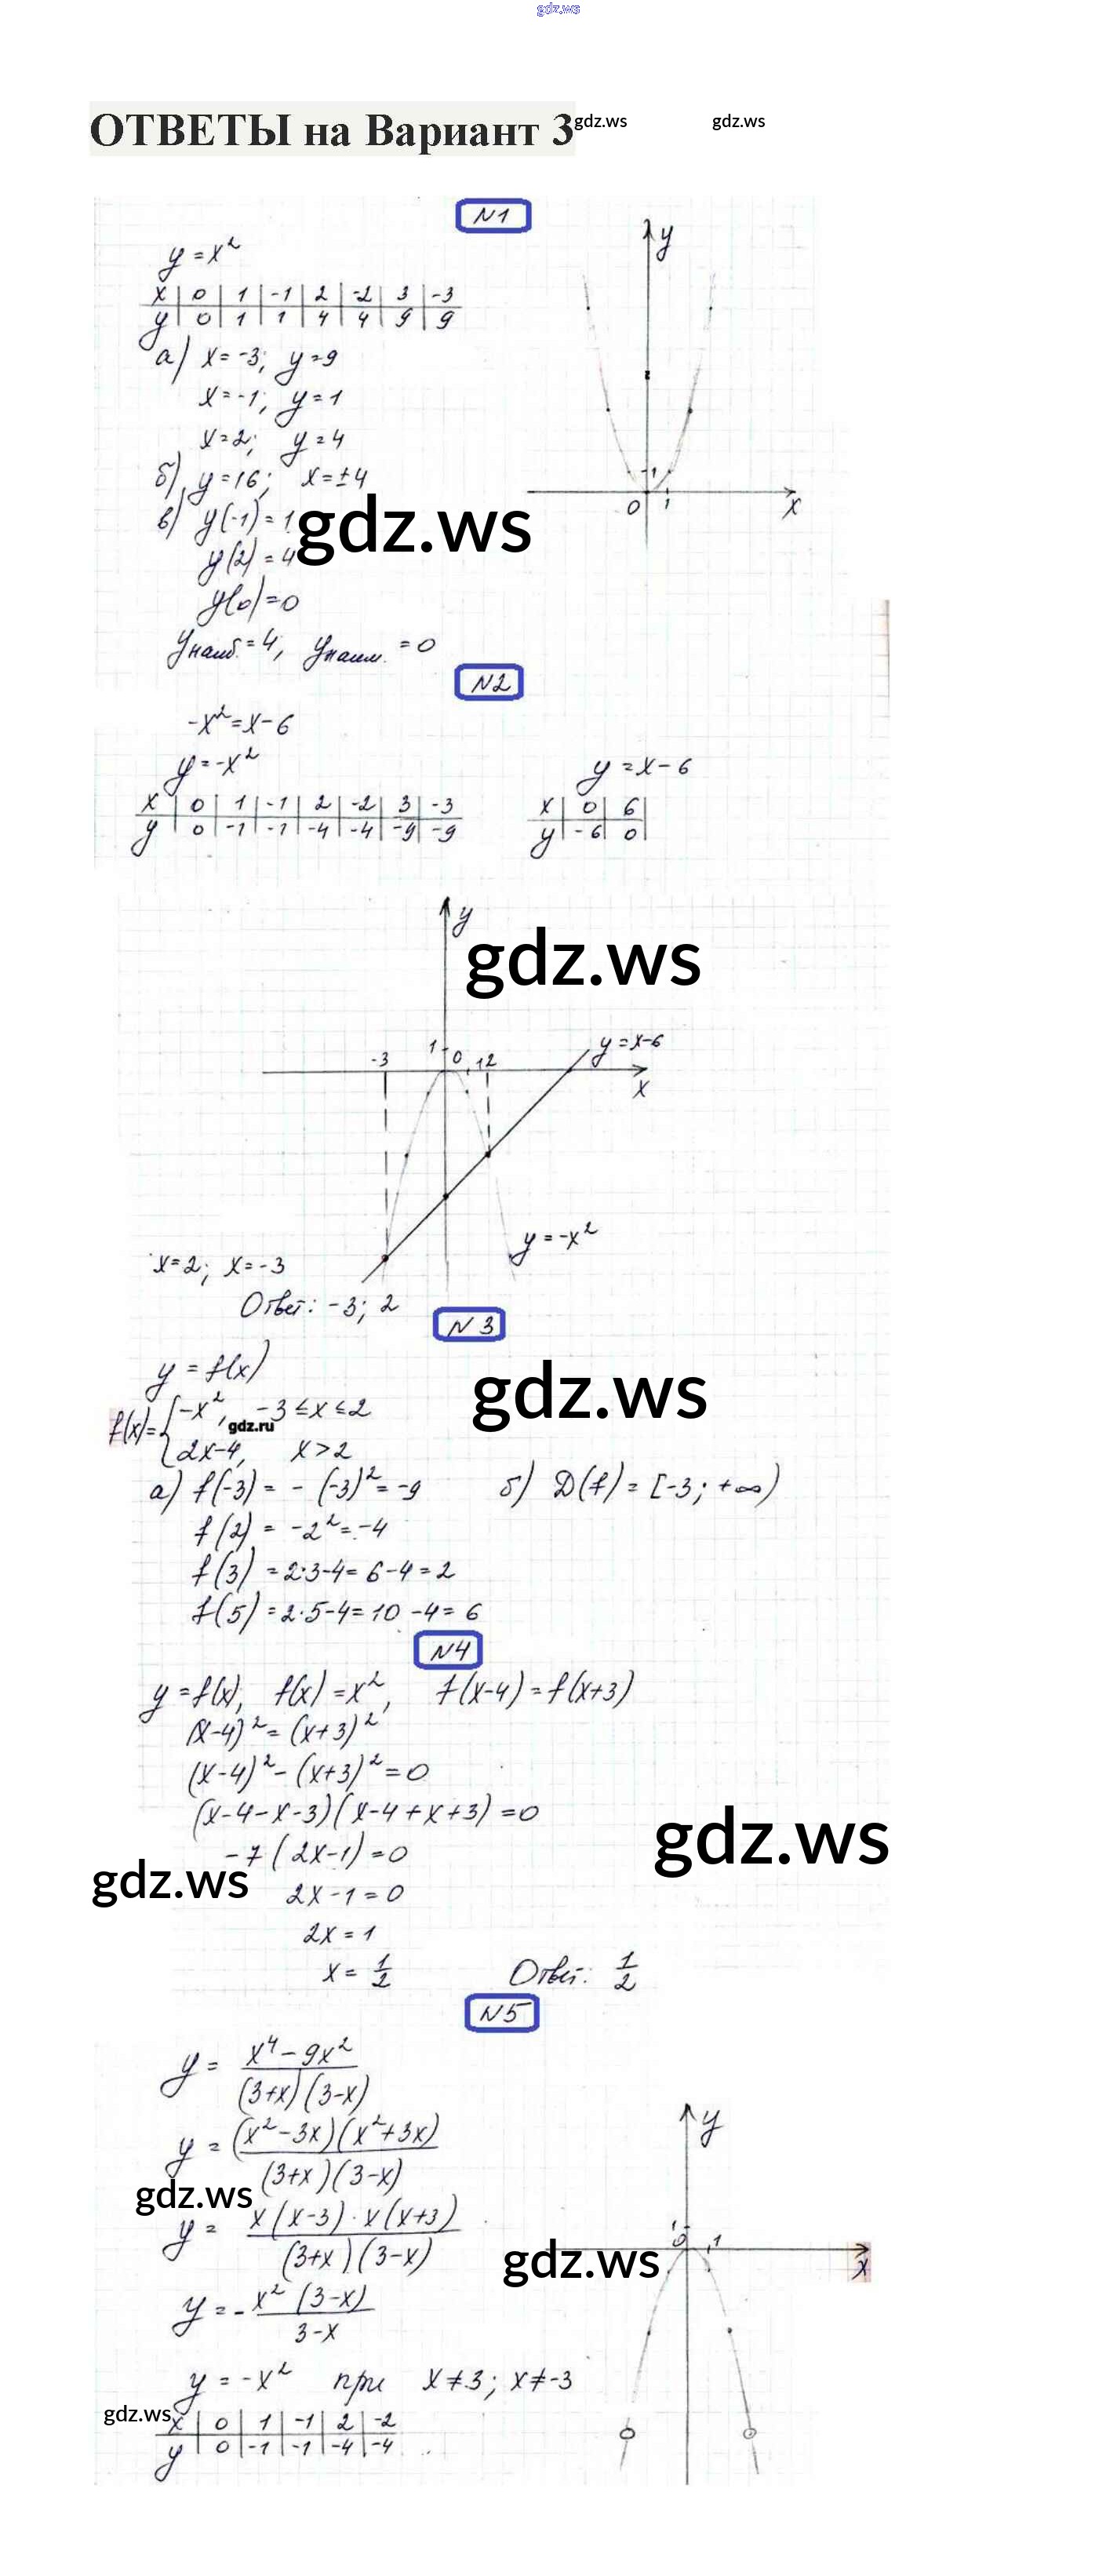 gdz.ws
ОТВЕТЫ на Вариант 3 gdz.ws gdz.ws
N1
y
y = x²
x | 0 | 1 | -1 | 2 | -2 | 3 | -3
y | 0 | 1 | 1 | 4 | 4 | 9 | 9
а) x = -3; y = 9
x = -1; y = 1
x = 2; y = 4
б) y = 16; x = ±4
1
0 1 x
в) y(-1) = 1
gdz.ws
y(2) = 4
y(0) = 0
yнаиб. = 4, yнаим. = 0
N2
-x² = x - 6
y = -x² y = x - 6
x | 0 | 1 | -1 | 2 | -2 | 3 | -3 x | 0 | 6
y | 0 | -1 | -1 | -4 | -4 | -9 | -9 y | -6 | 0
y
gdz.ws
1 y = x-6
-3 0 1 2
x
y = -x²
x = 2; x = -3
Ответ: -3; 2
N3
y = f(x)
gdz.ws
f(x) = { -x², -3 ≤ x ≤ 2
gdz.ru
2x-4, x > 2
а) f(-3) = -(-3)² = -9 б) D(f) = [-3; +∞)
f(2) = -2² = -4
f(3) = 2·3-4 = 6-4 = 2
f(5) = 2·5-4 = 10-4 = 6
N4
y = f(x), f(x) = x², f(x-4) = f(x+3)
(x-4)² = (x+3)²
(x-4)² - (x+3)² = 0
(x-4-x-3)(x-4+x+3) = 0
gdz.ws
-7(2x-1) = 0
gdz.ws
2x-1 = 0
2x = 1
x = 1/2 Ответ: 1/2
N5
y = (x⁴ - 9x²)/((3+x)(3-x))
y = ((x²-3x)(x²+3x))/((3+x)(3-x))
y
gdz.ws
y = (x(x-3)·x(x+3))/((3+x)(3-x))
1
0 1
gdz.ws x
y = -(x²(3-x))/(3-x)
y = -x² при x ≠ 3; x ≠ -3
gdz.ws
x | 0 | 1 | -1 | 2 | -2
y | 0 | -1 | -1 | -4 | -4